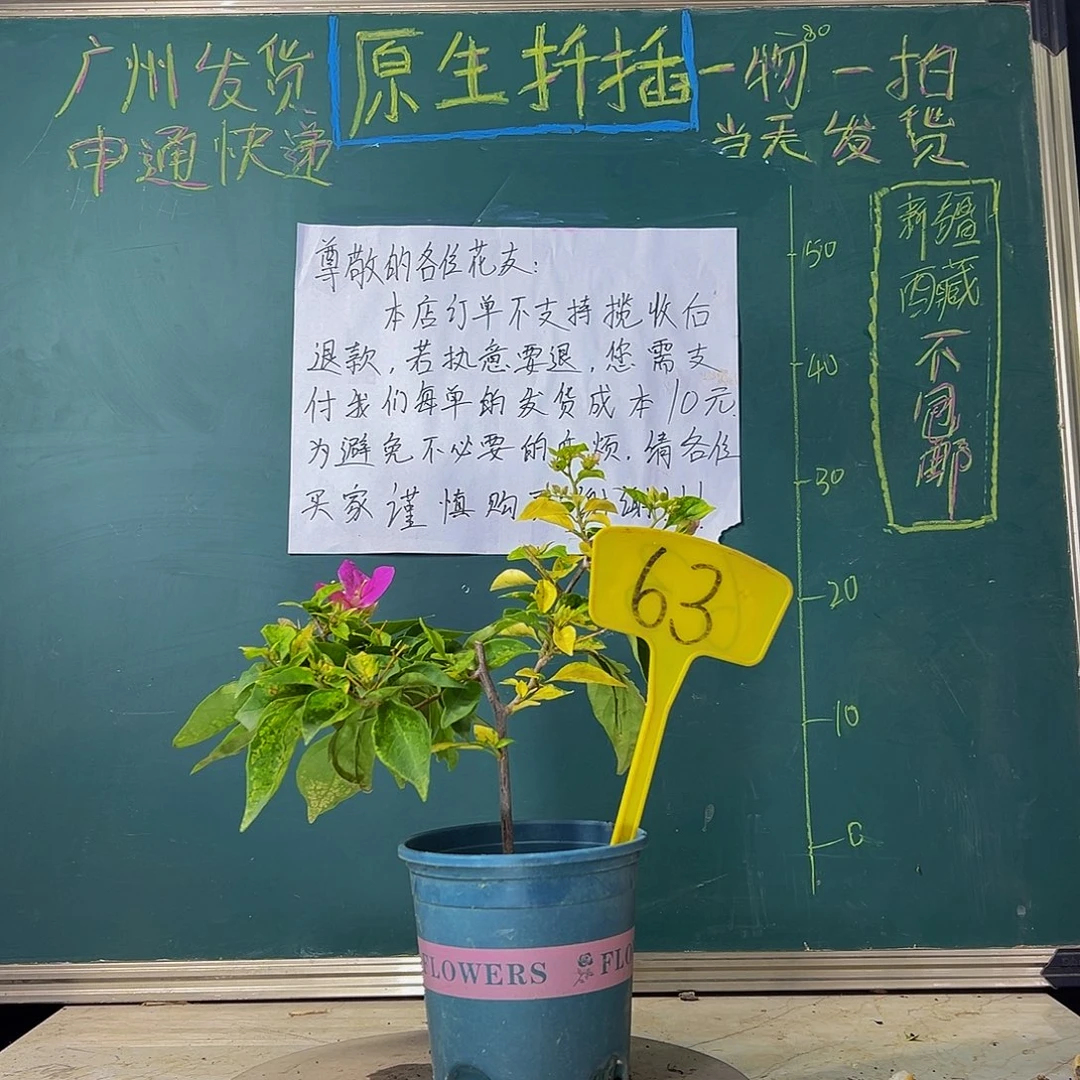 广州发货
原生扦插
一物一拍
申通快递
当天发货
新疆
西藏
不
包
邮
尊敬的各位花友:
本店订单不支持揽收后
退款,若执意要退,您需支
付我们每单的发货成本10元.
为避免不必要的麻烦.请各位
买家谨慎购
50
40
30
20
10
0
63
FLOWERS
FLO